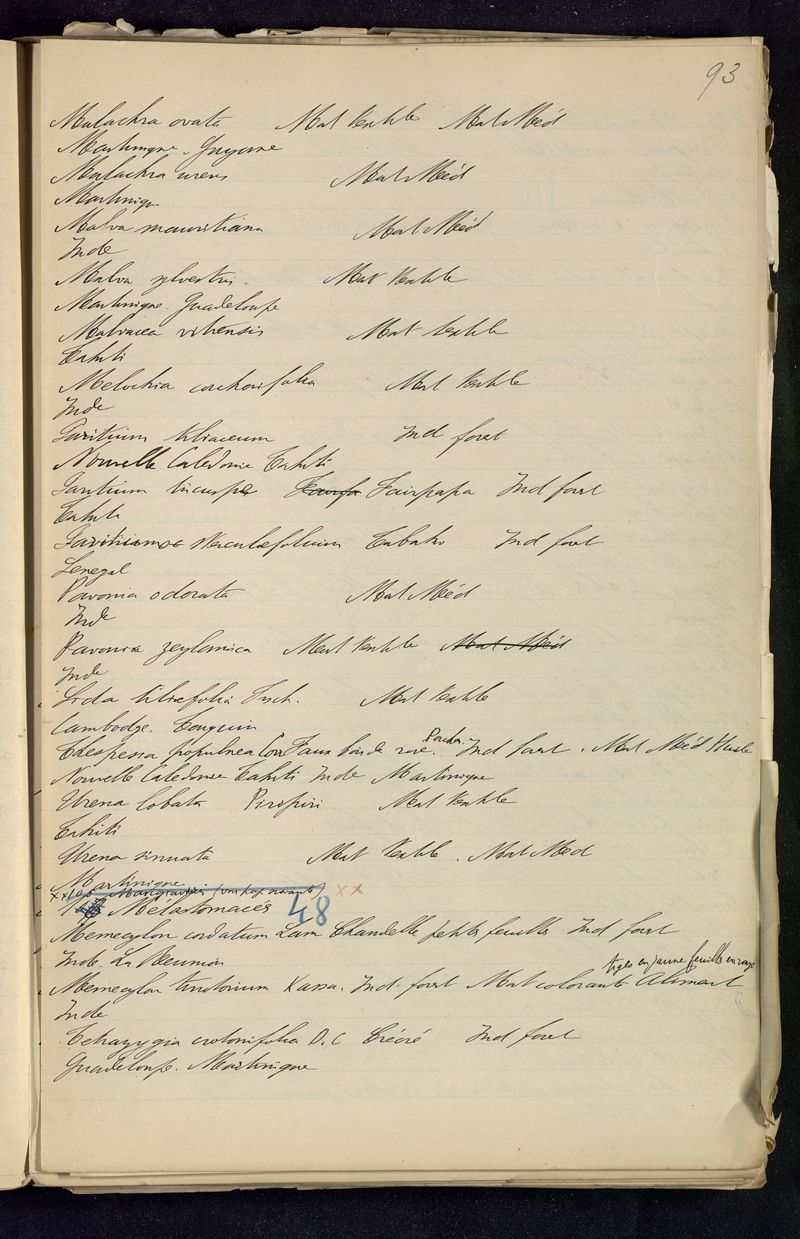 93
Malachra ovata Mat Textile Mat Méd
Martinique. Guyane
Malachra urens Mat Méd
Martinique
Malva mauritiana Mat Méd
Inde
Malva sylvestris. Mat Textile
Martinique. Guadeloupe
Malvacea vitiensis Mat textile
Tahiti
Melochia corchorifolia Mat Textile
Inde
Paritium tiliaceum Ind forest
Nouvelle Calédonie Tahiti
Paritium tricuspe Fairpapa Ind forest
Tahiti
Paritium sterculiæfolium Ind forest
Senegal
Pavonia odorata Mat Méd
Inde
Pavonia zeylanica Mat Textile Mat Méd
Inde
Sida tiliæfolia Fisch. Mat Textile
Cambodge. Tonquin
Thespesia populnea Cor Faux bois de rose. Porcher Ind forest. Mat Méd Huile
Nouvelle Calédonie Tahiti Inde Martinique
Urena lobata Piripiri Mat Textile
Tahiti
Urena sinuata Mat Textile. Mat Med
Martinique
(voir page suivante) xx
Mélastomacés 48
Memecylon cordatum Lam Chandelle petites feuilles Ind forest
Inde. La Réunion
tiges en jaune feuilles en rouge
Memecylon tinctorium Kassa. Ind. forest Mat colorante Aliment
Inde
Tetrazygia crotonifolia D.C Crécré Ind forest
Guadeloupe. Martinique